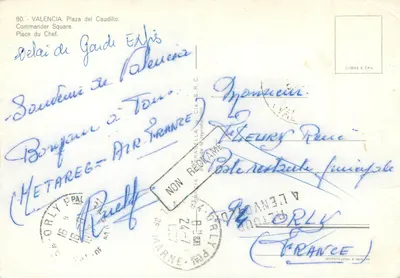 90. - VALENCIA. Plaza del Caudillo.
Commander Square.
Place du Chef.
Delai de Garde Expis
Souvenir de Valencia
Bonjour a Tous
(METAREG - AIR FRANCE)
Monsieur
FLEURY René
Poste restante principale
94 ORLY
(FRANCE)
NON RECLAMÉ
RETOUR
A L'ENVOYEUR
ORLY
24
ORLY
MARNE